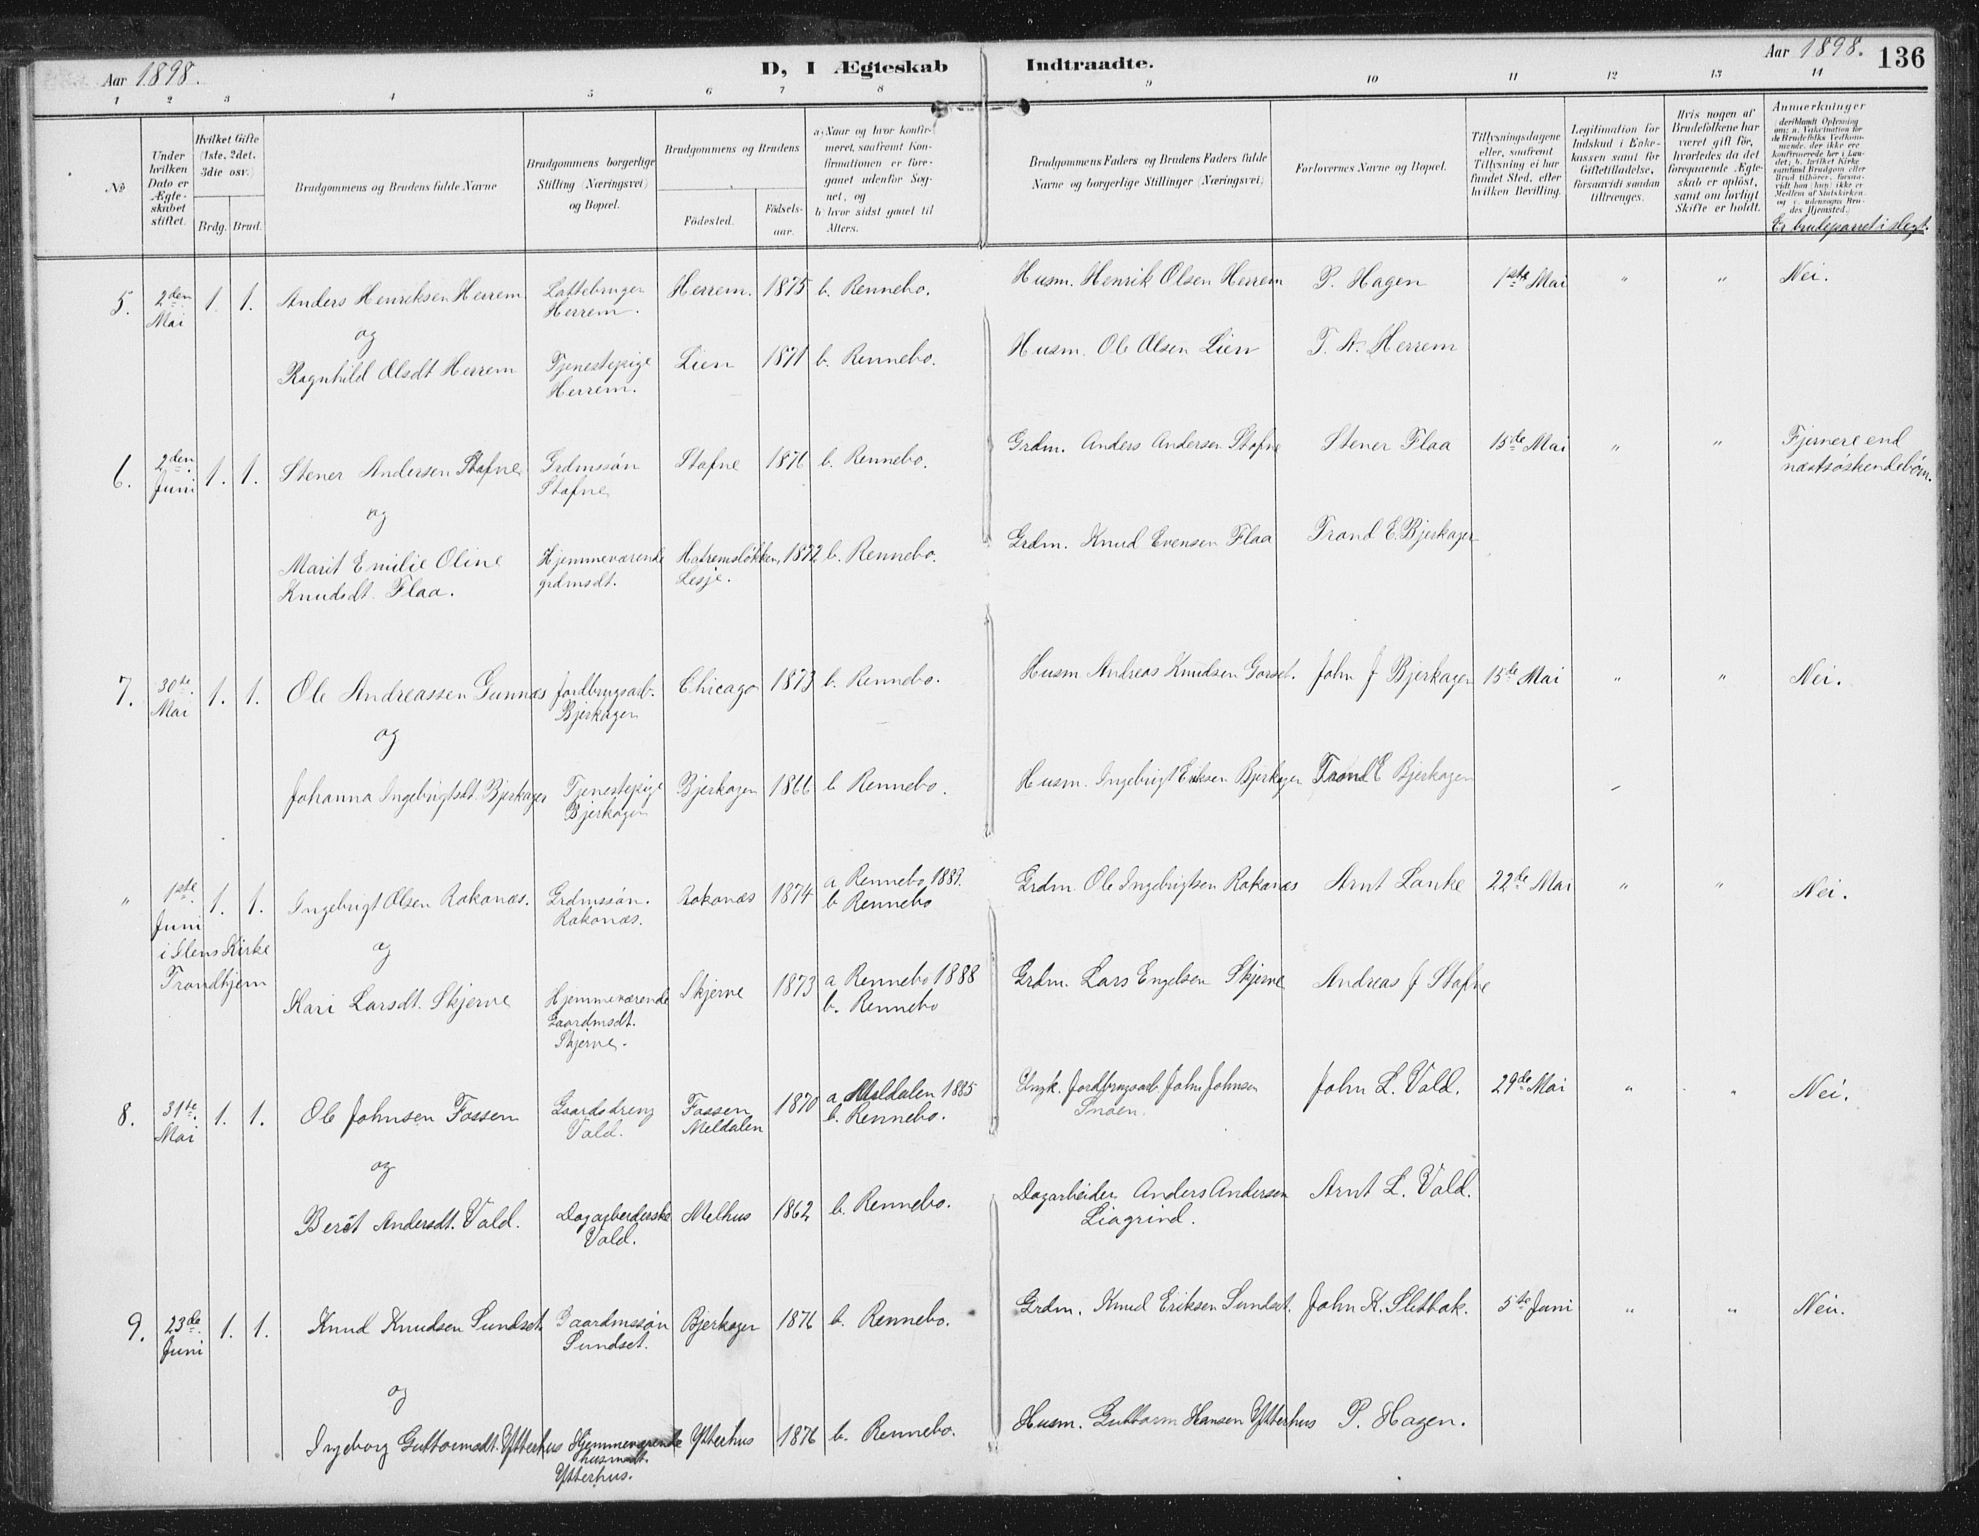 Aar 1898. D, I Ægteskab Indtraadte. Aar 1898. 136
1 2 3 4 5 6 7 8 9 10 11 12 13 14
No
Under hvilken Dato er Ægteskabet stiftet.
Hvilket Gifte (1ste, 2det, 3die osv.)
Brdg. Brud.
Brudgommens og Brudens fulde Navne
Brudgommens borgerlige Stilling (Næringsvei) og Bopæl.
Brudgommens og Brudens
Fødested. Fødselsaar.
a) Naar og hvor konfirmeret, saafremt Konfirmationen er foregaaet udenfor Sognet, og
b) hvor sidst gaaet til Alters.
Brudgommens Faders og Brudens Faders fulde Navne og borgerlige Stillinger (Næringsvei)
Forlovernes Navne og Bopæl.
Tillysningsdagene eller, saafremt Tillysning ei har fundet Sted, efter hvilken Bevilling.
Legitimation for Indskud i Enkekassen samt for Giftetilladelse, forsaavidt saadan tiltrænges.
Hvis nogen af Brudefolkene har været gift før, hvorledes da det foregaaende Ægteskab er opløst, samt om lovligt Skifte er holdt.
Anmærkninger
Er brudeparret i slegt.
5. 2den Mai 1. 1. Anders Henriksen Herrem Herrem. Herrem. 1875 b. Rennebo. Husm. Henrik Olsen Herrem P. Hagen 1ste Mai " " Nei.
og
Ragnhild Olsdt Herrem Tjenestepige Herrem. Lien 1871 b. Rennebo. Husm. Ole Olsen Lien T. A. Herrem
6. 2den Juni 1. 1. Stener Andersen Stafne Grdmssøn Stafne Stafne 1876 b. Rennebo. Grdm. Anders Andersen Stafne Stener Flaa 15de Mai " " Fjernere end næstsøskendebørn.
og
Marit Emilie Oline Knudsdt. Flaa. Hjemmeværende grdmsdt. Hatremsløkken, Lesje. 1872 b. Rennebo. Grdm. Knud Evensen Flaa Trond E. Bjerkager
7. 30te Mai 1. 1. Ole Andreassen Gunnæs Jordbrugsarb. Bjerkagen Chicago 1873 b. Rennebo. Husm Andreas Knudsen Gorset. John J Bjerkagen 15de Mai " " Nei.
og
Johanna Ingebrigtsdt. Bjerkager Tjenestepige Bjerkagen Bjerkagen 1866 b Rennebo. Husm. Ingebrigt Eriksen Bjerkagen Trond E Bjerkagen "
" 1ste Juni i Ilens Kirke Trondhjem 1. 1. Ingebrigt Olsen Rokonæs. Grdmssøn. Rokonæs. Rokonæs 1874 a Rennebo 1889. b Rennebo Grdm. Ole Ingebrigtsen Rokonæs Arnt Lanke 22de Mai " " Nei.
og
Kari Larsdt. Skjerve Hjemmeværende Gaardmsdt. Skjerve. Skjerve 1873 a Rennebo 1888 b. Rennebo Grdm. Lars Engelsen Skjerve Andreas J Stafne
8. 31te Mai 1. 1. Ole Johnsen Fossen Gaardsdreng Vold. Fossen Meldalen 1870 a. Meldalen 1885 b. Rennebo. Jordbrugsarb. John Johnsen Snoen. John L. Vold. 29de Mai " " Nei.
og
Berit Andersdt. Vold. Dagarbeiderske Vold. Melhus 1862 b. Rennebo. Dagarbeider Anders Andersen Liagrind. Arnt L. Vold.
9. 23de Juni 1. 1. Knud Knudsen Sundset. Gaardmssøn Sundset. Bjerkager 1876 b. Rennebo. Grdm. Knud Eriksen Sundset. John K. Sletbak. 5te Juni " " Nei.
og
Ingeborg Guttormsdt. Ytterhus Hjemmeværende husmdt. Ytterhus. Ytterhus 1876 b. Rennebo. Husm. Guttorm Hansen Ytterhus P. Hagen.